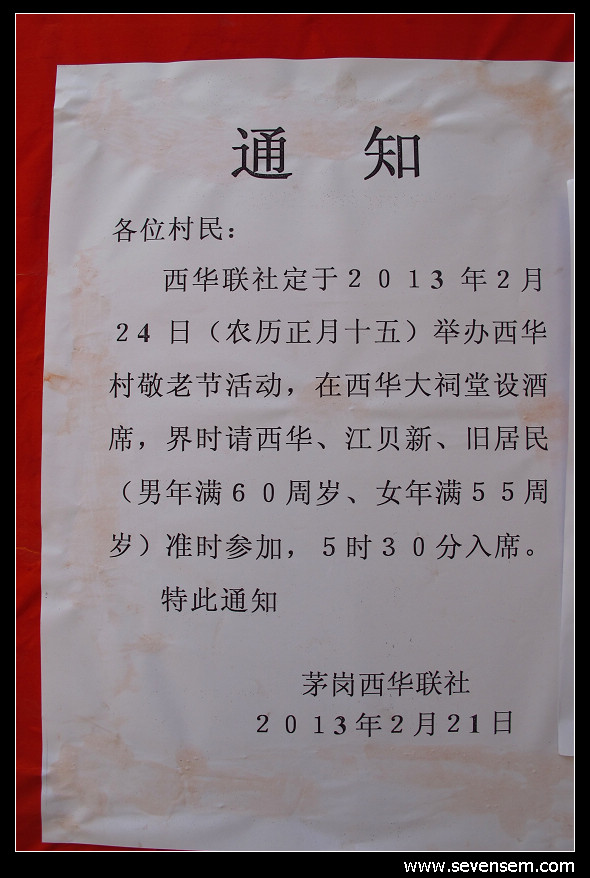 通 知
各位村民：
西华联社定于２０13 年２月
24 日（农历正月十五）举办西华
村敬老节活动，在西华大祠堂设酒
席，界时请西华、江贝新、旧居民
（男年满６０周岁、女年满５５周
岁）准时参加，５时３０分入席。
特此通知
茅岗西华联社
２０13年２月21日
www.sevensem.com